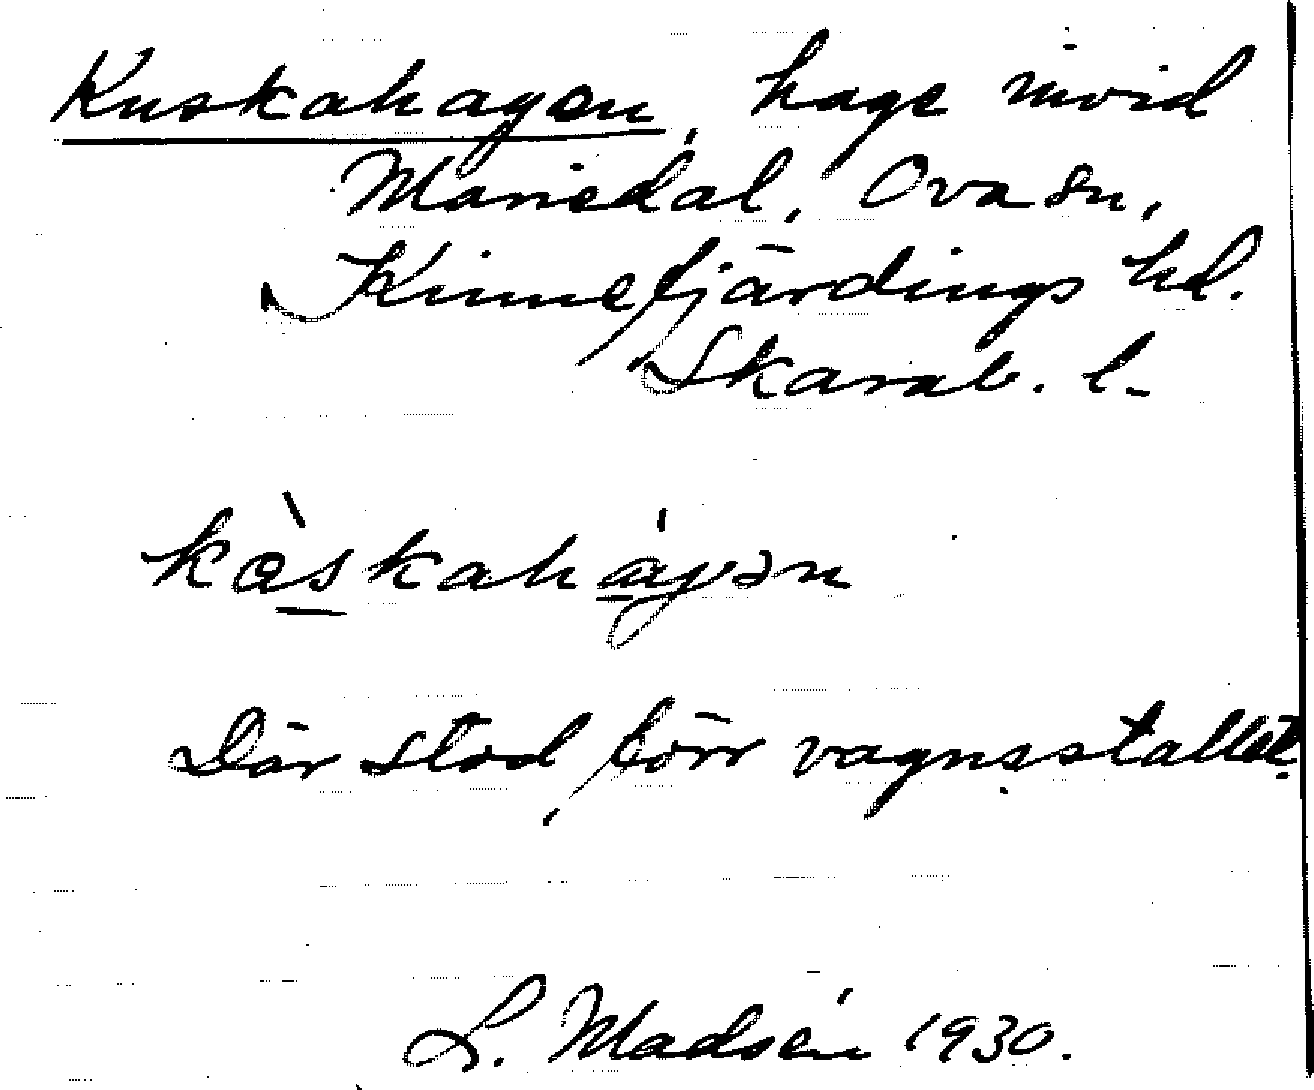 Kuskahagen, hage invid
Mariedal, Ova sn,
Kinnefjärdings hd.
Skarab. l.
kòskahágən
Där stod förr vagnsstallet.
L. Madsén 1930.